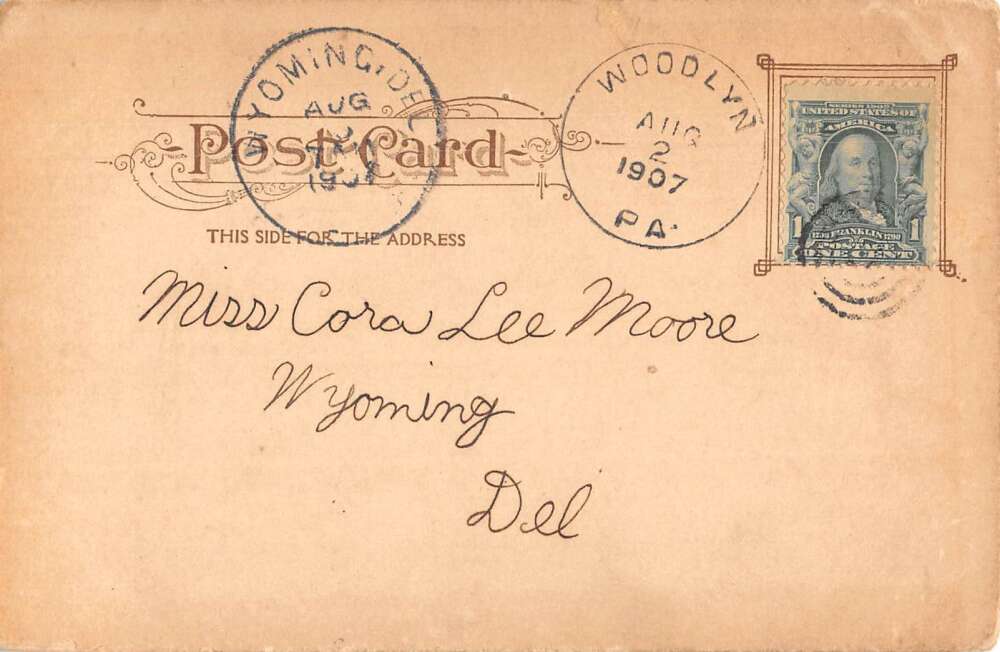 WYOMING, DEL.
AUG
1907
WOODLYN
AUG
2
1907
PA.
-Post Card-
THIS SIDE FOR THE ADDRESS
SERIES 1902
UNITED STATES OF
AMERICA
1 FRANKLIN 1
POSTAGE
ONE CENT
Miss Cora Lee Moore
Wyoming
Del